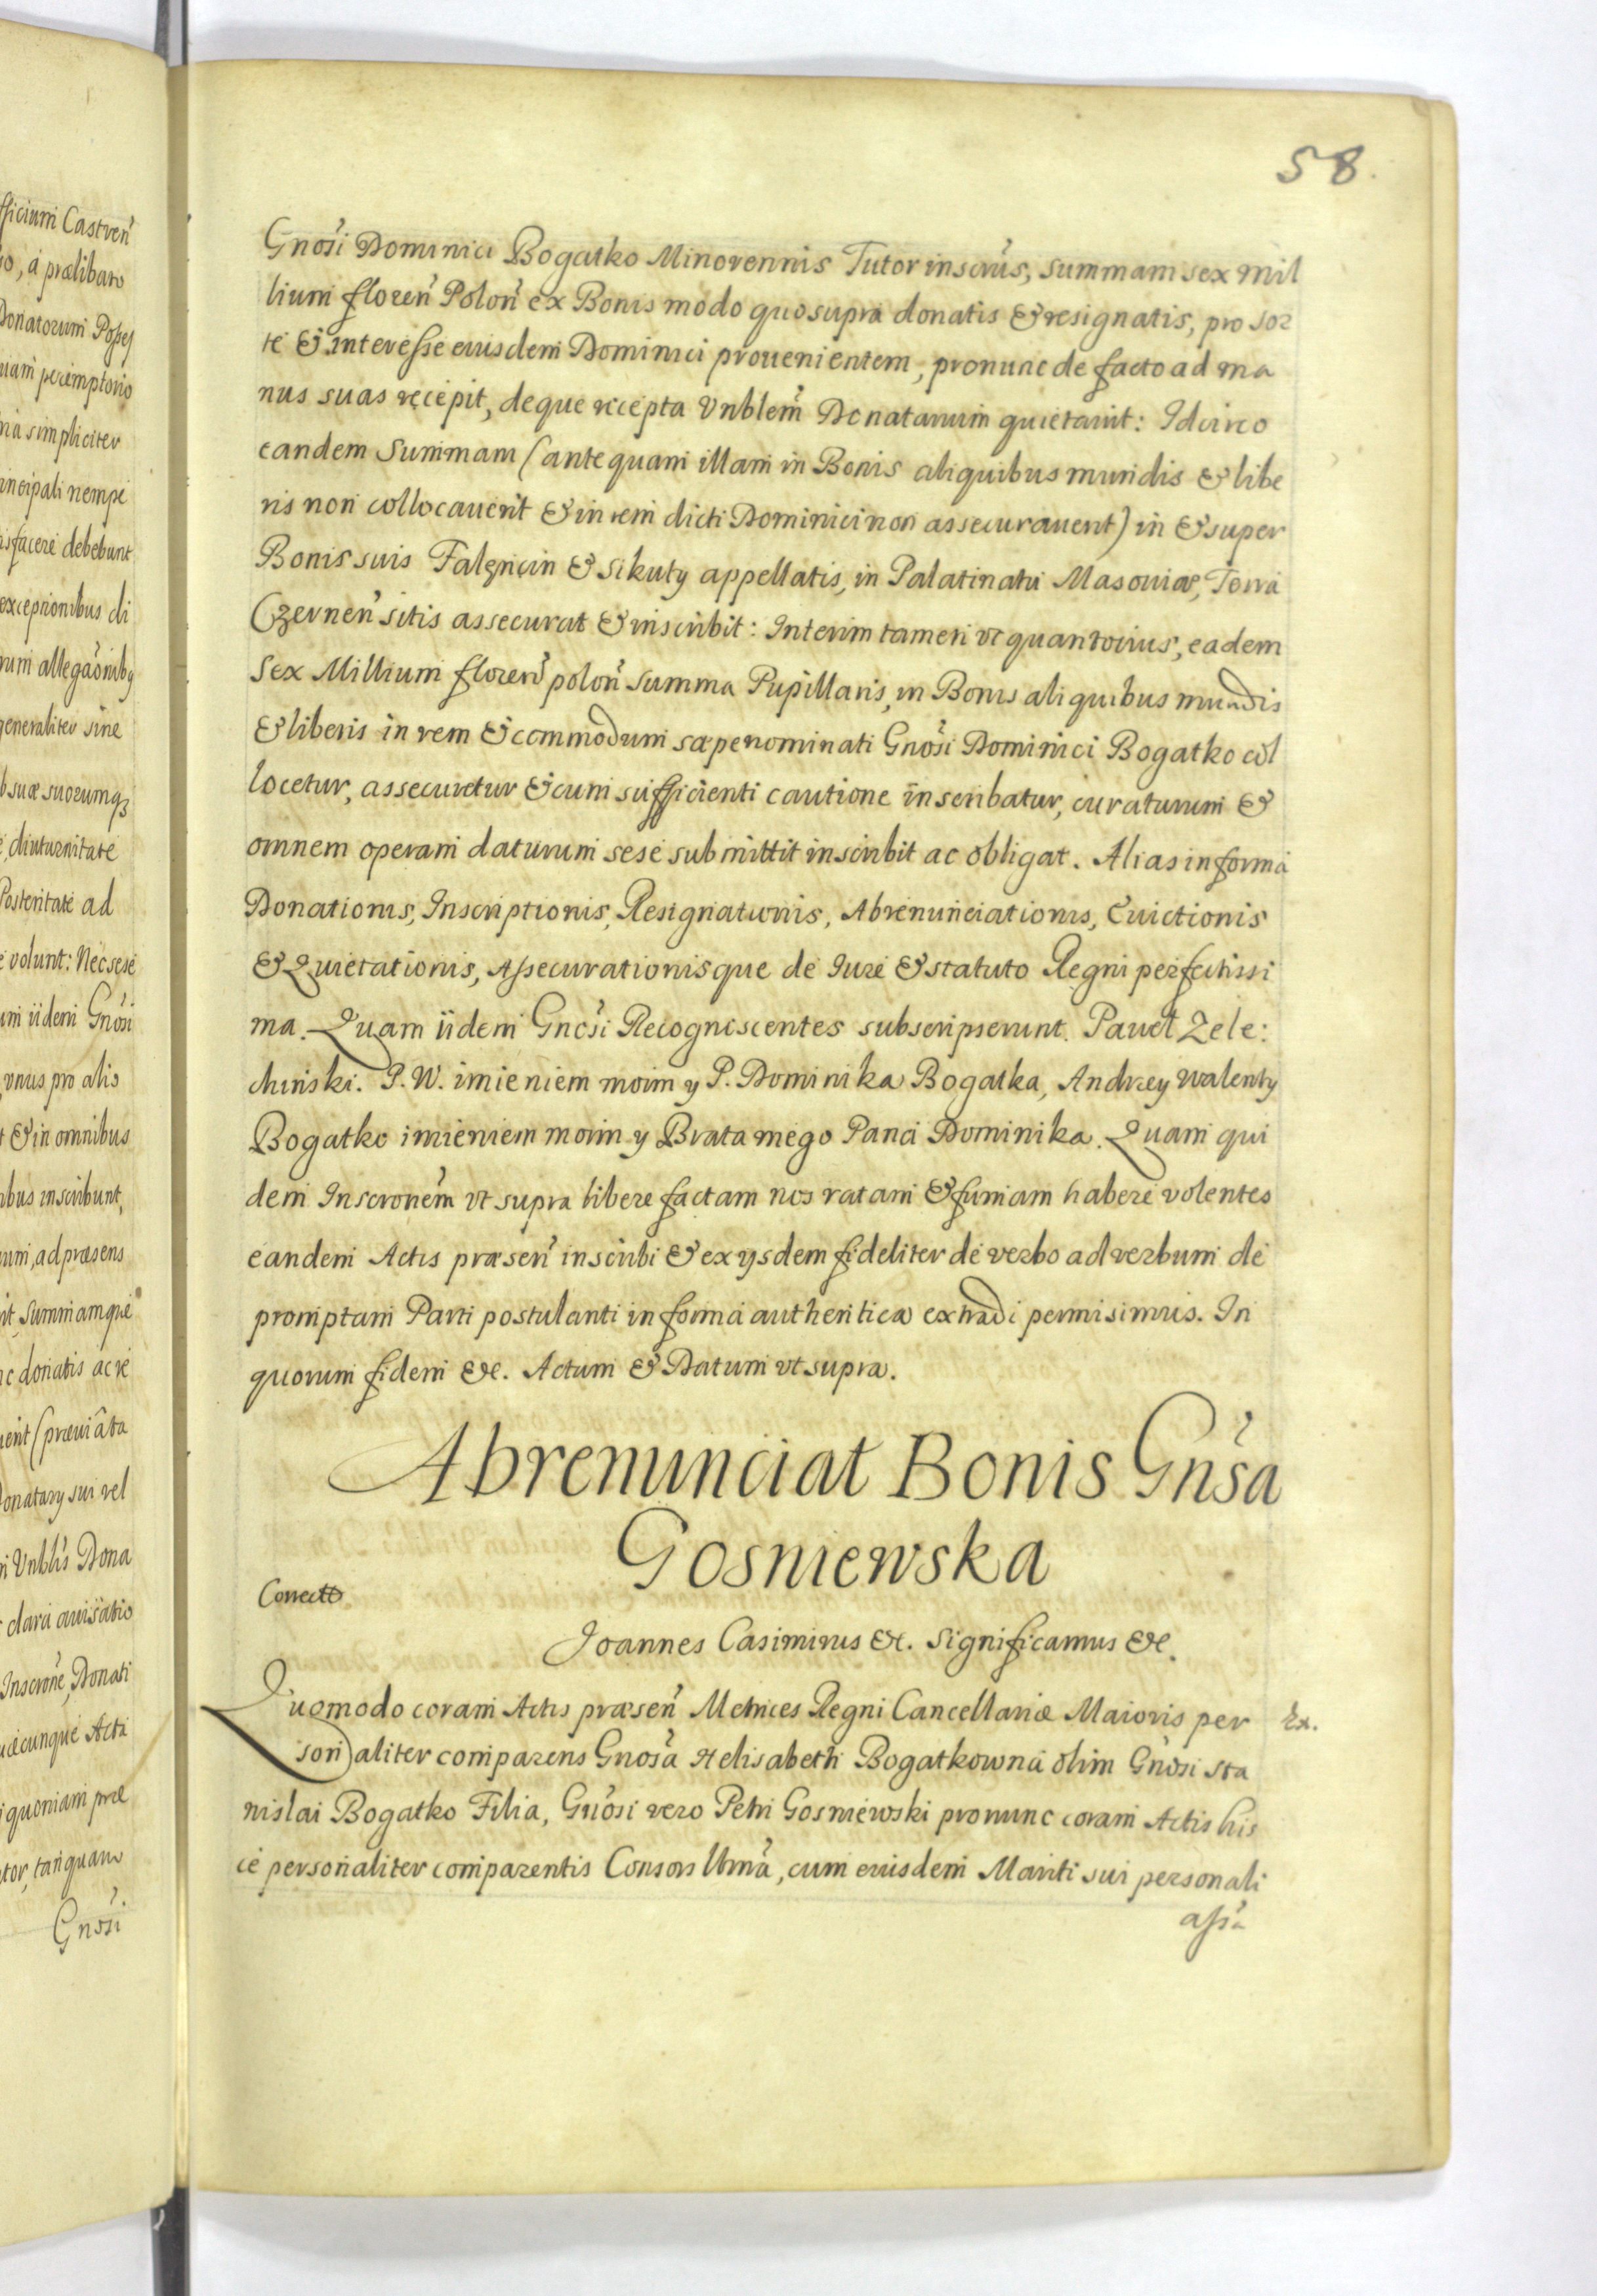 fficium Castren̄
io, á prælibato
Donatorum Posses
uam peremptorio
na simpliciter
incipali nempe
isfacere debebunt
exceptionibus di
rum allegaōnibq
generaliter sine
b suæ suorumqȝ
e, diuturnitate
Posteritate ad
e volunt: Nec sese
um iidem Gnōsi
vnus pro aliis
t & in omnibus
ibus inscribunt,
um, ad præsens
it, summamque
nc donatis ac re
uent (præuia ta
Donatary sui vel
ri Vnblis Dona
clara auisatio
Inscrōne, Donati
uæcunque Acta
i quoniam præ
tor, tanquam
Gnōsi
58.
Gnōsi Dominici Bogatko Minorennis Tutor inscrūs, summam sex mil
lium floren̄ Polon̄ ex Bonis modo quo supra donatis & resignatis, pro sor
te & interesse eiusdem Dominici prouenientem, pro nunc de facto ad ma
nus suas recepit, deque recepta Vnblem̄ Donatarium quietauit: Idcirco
eandem Summam (antequam illam in Bonis aliquibus mundis & libe
ris non collocauerit & in rem dicti Dominici non assecurauerit) in & super
Bonis suis Falęncin & Sikuty appellatis, in Palatinatu Masouiæ, Terra
Czernen̄ sitis assecurat & inscribit: Interim tamen vt quantocius, eadem
Sex Millium floren̄ polon̄ summa Pupillaris, in Bonis aliquibus mundis
& liberis in rem & commodum sæpenominati Gnōsi Dominici Bogatko col
locetur, assecuretur & cum sufficienti cautione inscribatur, curaturum &
omnem operam daturum sese submittit inscribit ac obligat. Alias in forma
Donationis, Inscriptionis, Resignationis, Abrenunciationis, Euictionis
& Quietationis, Assecurationisque de Iure & statuto Regni perfectissi
ma. Quam iidem Gnōsi Recognoscentes subscripserunt. Paweł Zele:
chiński. P. W. imieniem moim y P. Dominika Bogatka, Andrzey Walenty
Bogatko imieniem moim y Brata mego Pana Dominika. Quam qui
dem Inscronem̄ vt supra libere factam nos ratam & firmam habere volentes
eandem Actis præsen̄ inscribi & ex ysdem fideliter de verbo ad verbum de
promptam Parti postulanti in forma authentica extradi permisimus. In
quorum fidem &c. Actum & Datum vt supra.
Abrenunciat Bonis Gn̄sa
Gosniewska
Correcto
Joannes Casimirus &c. Significamus &c.
Quomodo coram Actis præsen̄ Metrices Regni Cancellariæ Maioris per
Ex.
sonaliter comparens Gnōsa Helisabeth Bogatkowna olim Gnōsi Sta
nislai Bogatko Filia, Gnōsi vero Petri Gosniewski pro nunc coram Actis his
ce personaliter comparentis Consors Ltma, cum eiusdem Mariti sui personali
assa